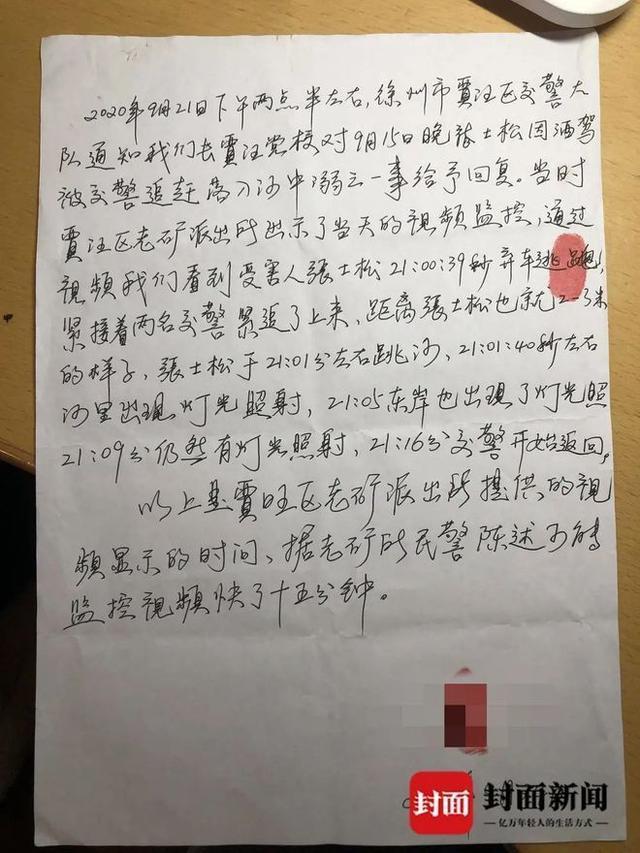 2020年9月21日下午两点半左右,徐州市賈汪区交警大
队通知我们去賈汪党校对9月15日晚张士松因酒驾
被交警追赶落入河中溺亡一事给予回复。当时
賈汪区老矿派出所出示了当天的視频监控,通过
視频我们看到受害人張士松21:00:39秒弃车逃跑,
紧接着两名交警紧追了上来,距离張士松也就2-3米
的样子,張士松于21:01分左右跳河,21:01:40秒左右
河里出现灯光照射,21:05东岸也出现了灯光照
21:09分仍然有灯光照射,21:16分交警开始返回。
以上是賈旺区老矿派出所提供的視
频显示的时间,据老矿所民警陈述
监控視频快了十五分钟。
封面 封面新闻
亿万年轻人的生活方式